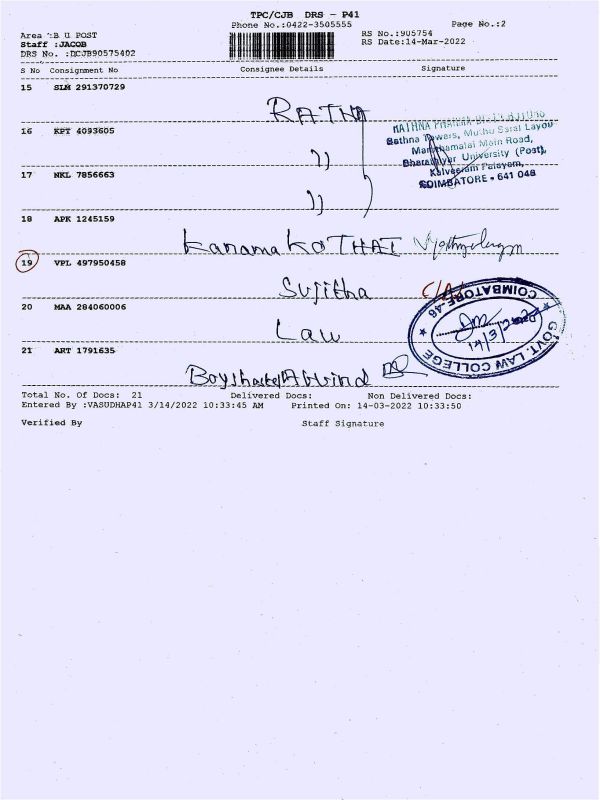 TPC/CJB DRS - P41
Phone No.:0422-3505555 Page No.:2
Area :B U POST RS No.:905754
Staff :JACOB RS Date:14-Mar-2022
DRS No. :DCJB90575402
S No Consignment No Consignee Details Signature
15 SLM 291370729
RATNA
16 KPT 4093605
〃
17 NKL 7856663
〃
Rathna Towers, Muthu Saral Layout
Main Road,
Bharathiyar University (Post),
Kalveeram Palayam,
COIMBATORE - 641 046
18 APK 1245159
19 VPL 497950458
Sujitha
20 MAA 284060006
Law
GOVT. LAW COLLEGE
COIMBATORE-46
21 ART 1791635
Total No. Of Docs: 21 Delivered Docs: Non Delivered Docs:
Entered By :VASUDHAP41 3/14/2022 10:33:45 AM Printed On: 14-03-2022 10:33:50
Verified By Staff Signature